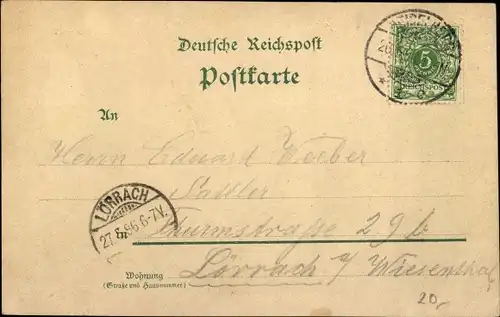 Deutsche Reichspost
Postkarte
HEIDELBERG
5
REICHSPOST
An
Herrn Eduard Weeber
Sattler
LÖRRACH
27. 96. 6-7V.
in Thurmstraße 29b
Lörrach i/ Wiesenthal
Wohnung
(Straße und Hausnummer)
20,-